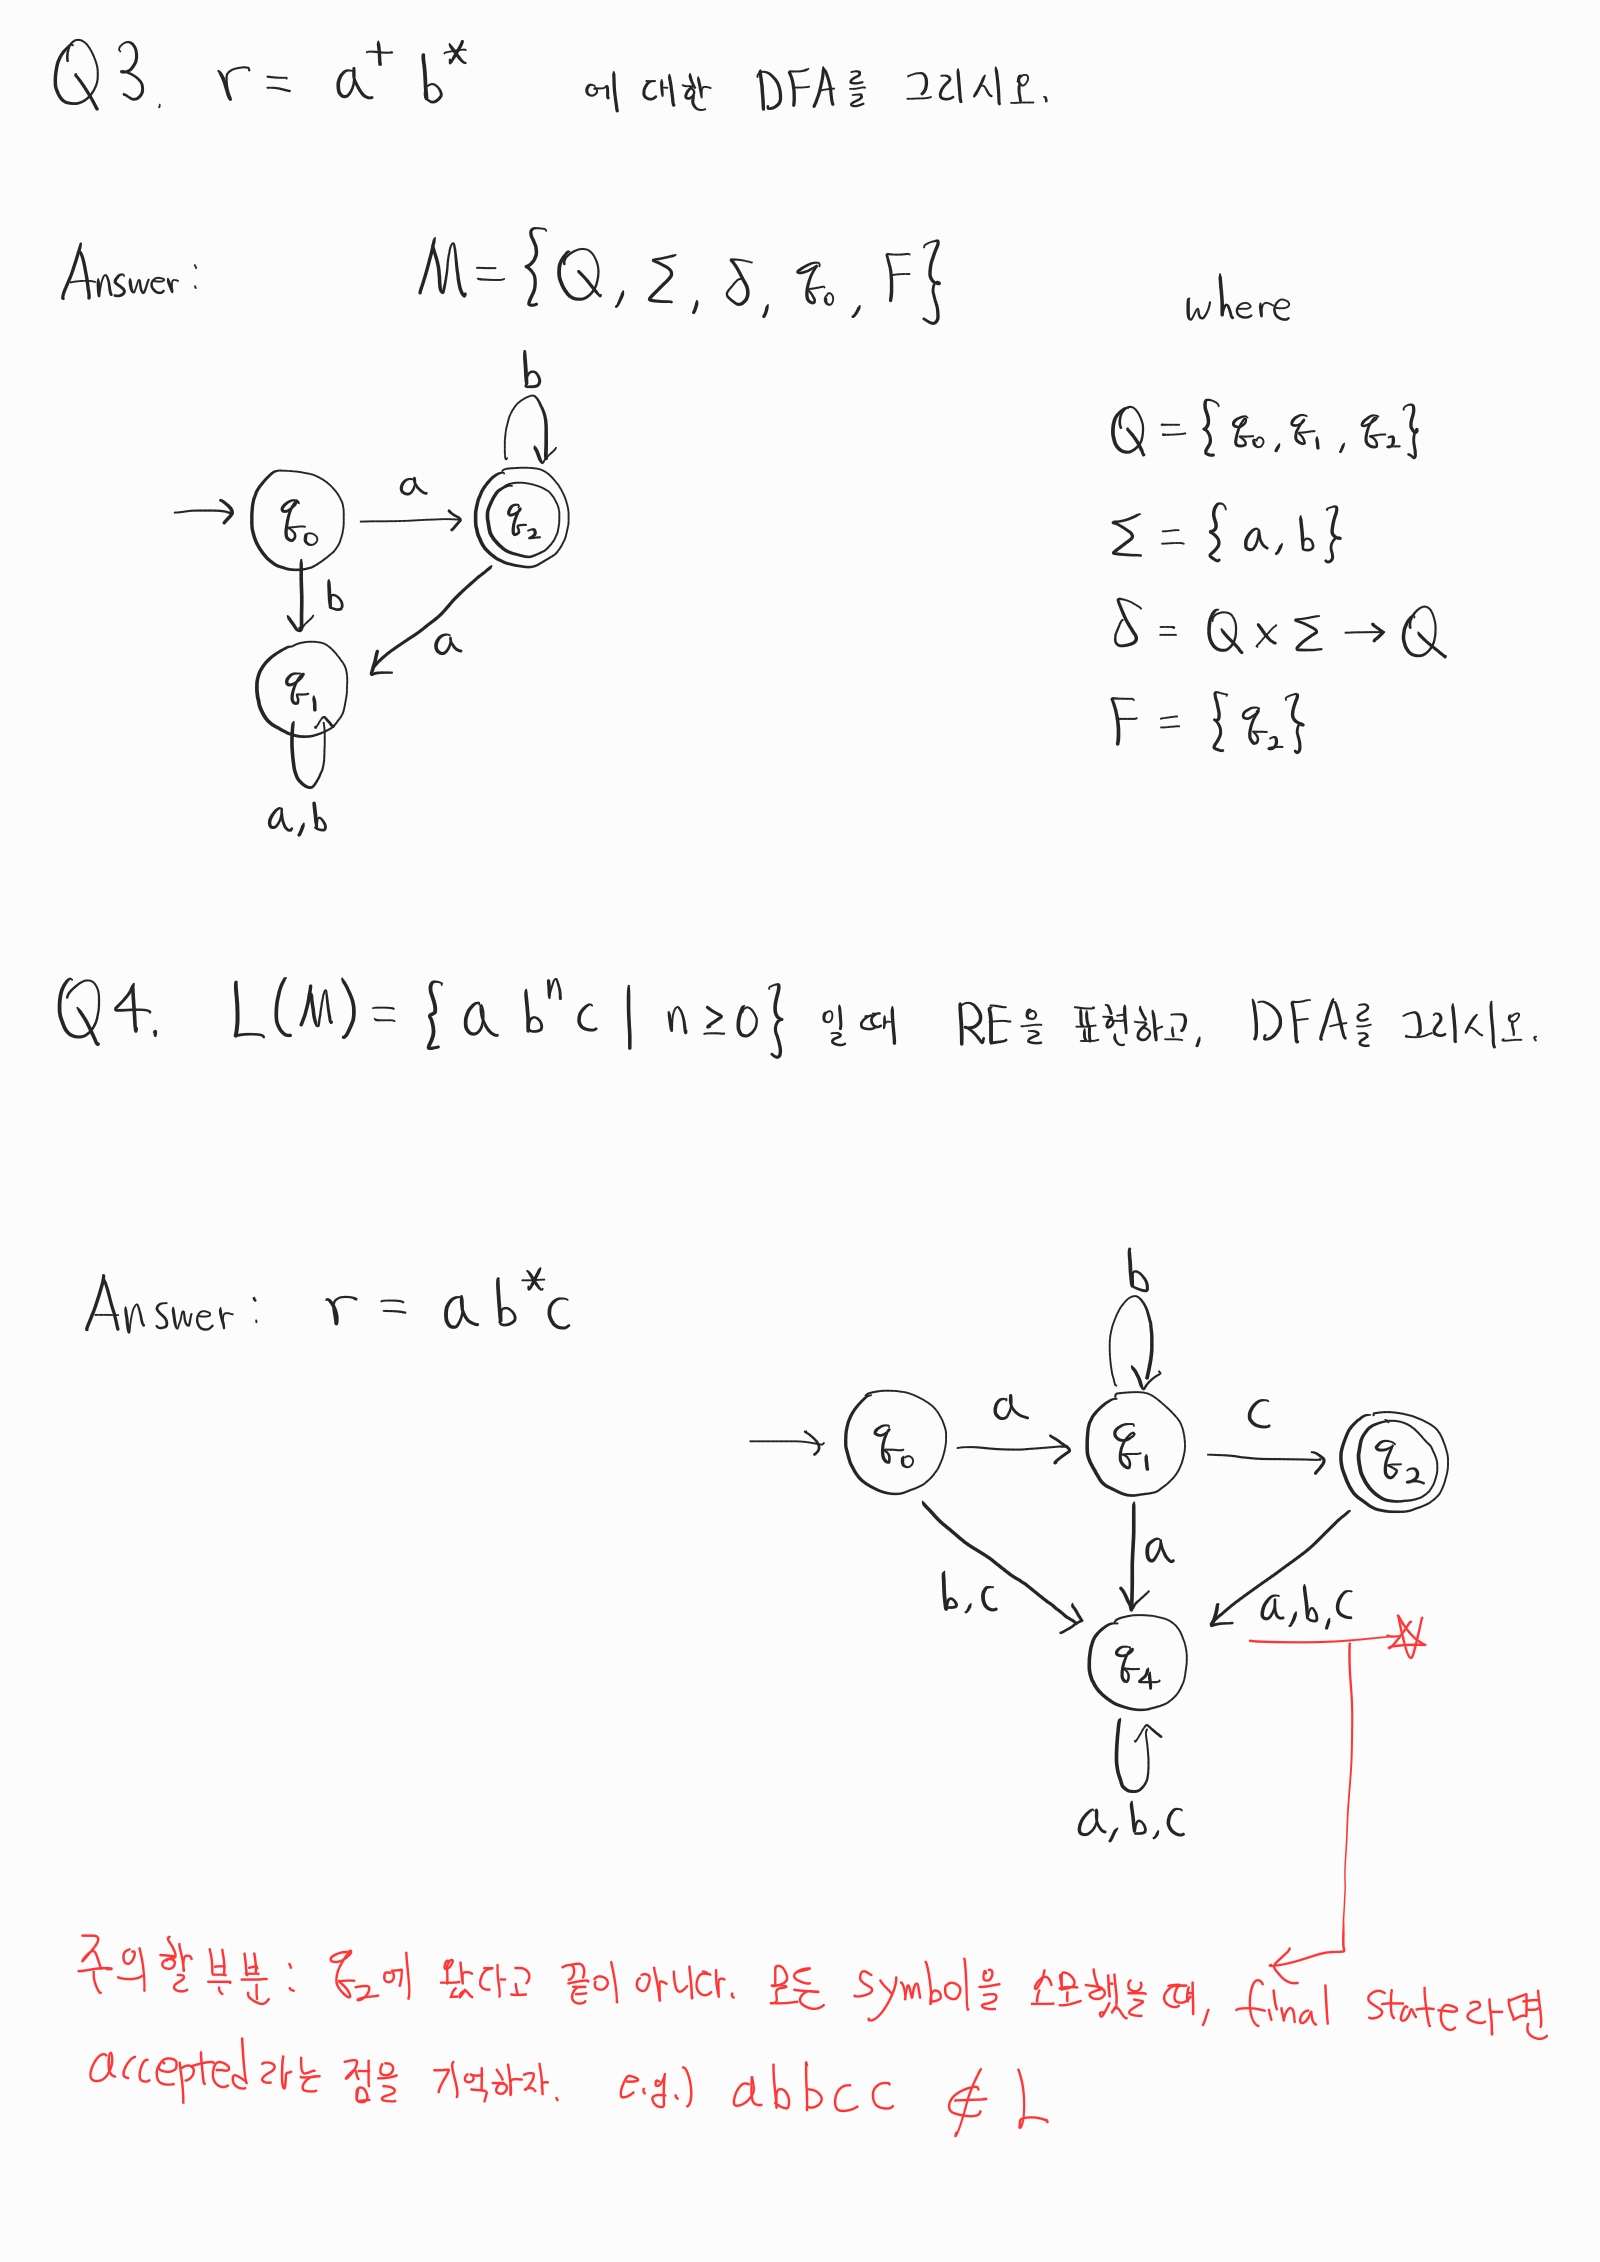 Q3. r = a⁺ b* 에 대한 DFA를 그리시오.
Answer: M = {Q, Σ, δ, q₀, F} where
Q = {q₀, q₁, q₂}
Σ = {a, b}
δ = Q × Σ → Q
F = {q₂}
b
q₀ a q₂
b a
q₁
a, b
Q4. L(M) = {a bⁿ c | n ≥ 0} 일 때 RE을 표현하고, DFA를 그리시오.
Answer: r = a b* c
b
q₀ a q₁ c q₂
b, c a a, b, c
q₄
a, b, c
주의할 부분: q₂에 왔다고 끝이 아니다. 모든 symbol을 소모했을 때, final state라면
accepted라는 점을 기억하자. e.g.) abbcc ∉ L